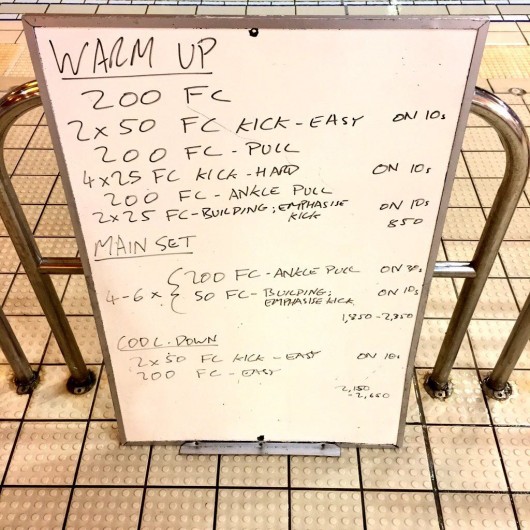 WARM UP
200 FC
2x50 FC KICK-EASY ON 10s
200 FC-PULL
4x25 FC KICK-HARD ON 10s
200 FC-ANKLE PULL
2x25 FC-BUILDING; EMPHASISE KICK ON 10s
850
MAIN SET
4-6 x { 200 FC-ANKLE PULL ON
50 FC-BUILDING; EMPHASISE KICK ON 10s
1,850-2,350
COOL-DOWN
2x50 FC KICK-EASY ON 10s
200 FC-EASY
2,150
-2,650